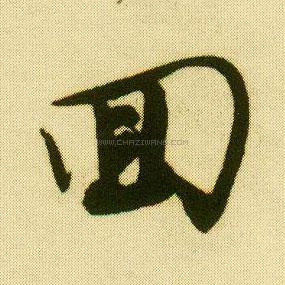 回
WWW.CHAZIWANG.COM